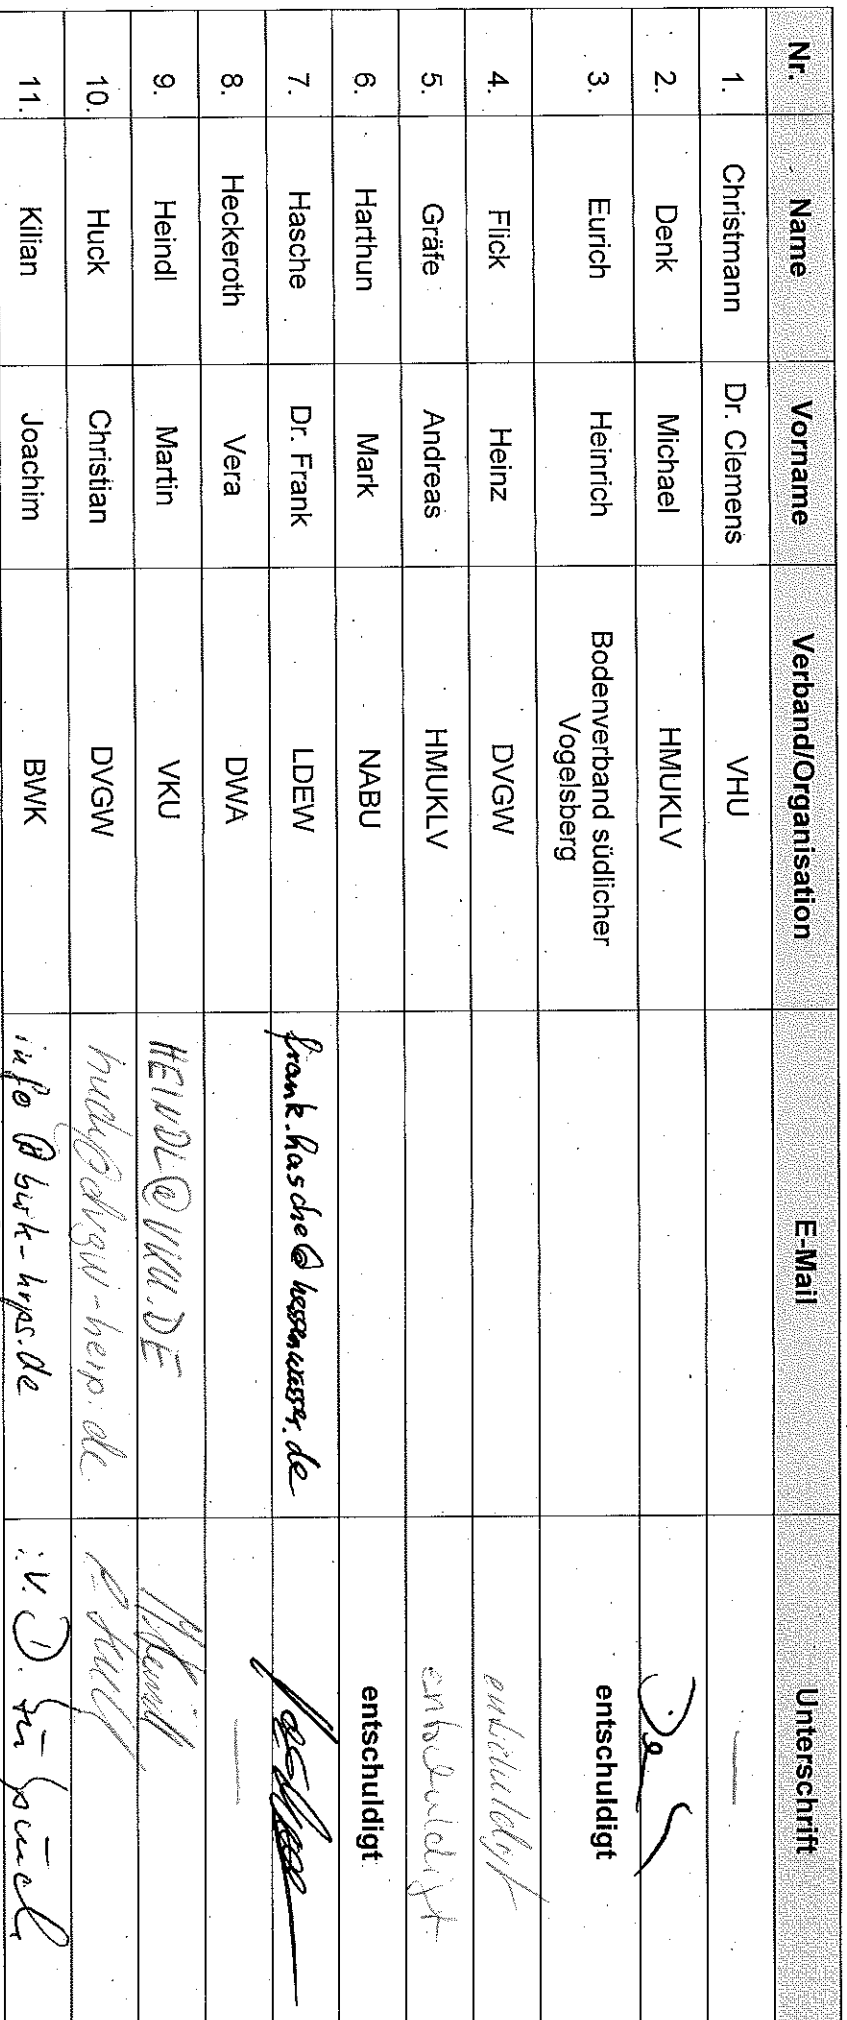 Nr. Name Vorname Verband/Organisation E-Mail Unterschrift
1. Christmann Dr. Clemens VHU —
2. Denk Michael HMUKLV
3. Eurich Heinrich Bodenverband südlicher entschuldigt
Vogelsberg
4. Flick Heinz DVGW entschuldigt
5. Gräfe Andreas HMUKLV entschuldigt
6. Harthun Mark NABU entschuldigt
7. Hasche Dr. Frank LDEW frank.hasche@hessenwasser.de
8. Heckeroth Vera DWA —
9. Heindl Martin VKU HEINDL@VKU.DE
10. Huck Christian DVGW
11. Kilian Joachim BWK i.V.